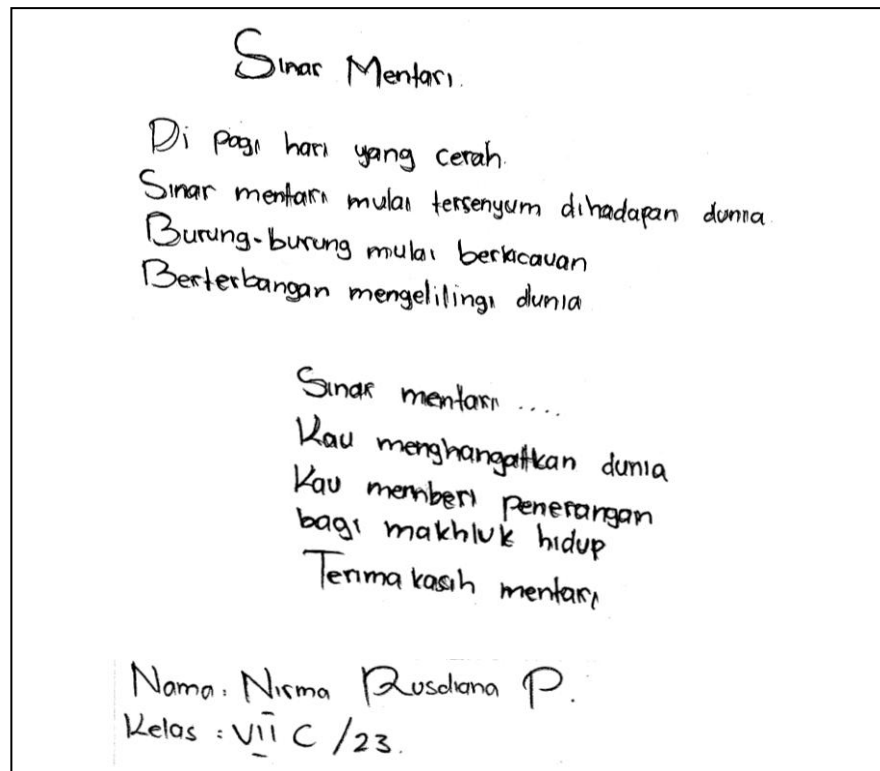 Sinar Mentari.
Di pagi hari yang cerah.
Sinar mentari mulai tersenyum dihadapan dunia.
Burung-burung mulai berkicauan
Berterbangan mengelilingi dunia
Sinar mentari ....
Kau menghangatkan dunia
Kau memberi penerangan
bagi makhluk hidup
Terima kasih mentari
Nama: Nirma Rusdiana P.
Kelas : VII C /23.